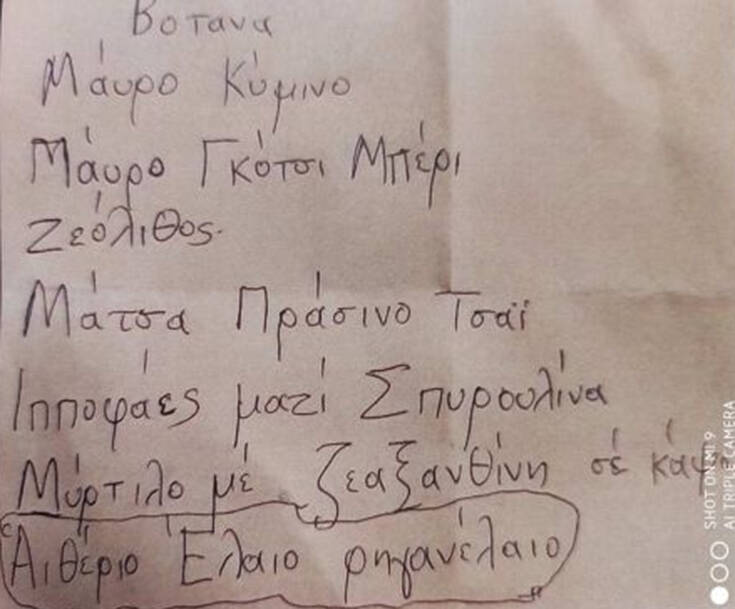 Βοτανα
Μάυρο Κύμινο
Μάυρο Γκότσι Μπέρι
Ζεόλιθος.
Μάτσα Πράσινο Τσαϊ
Ιπποφάες μαζί Σπυρουλίνα
Μύρτιλο μέ Ζεαξανθίνη σέ
Αιθέριο Έλαιο ρηγανέλαιο
SHOT ON MI 9
AI TRIPLE CAMERA